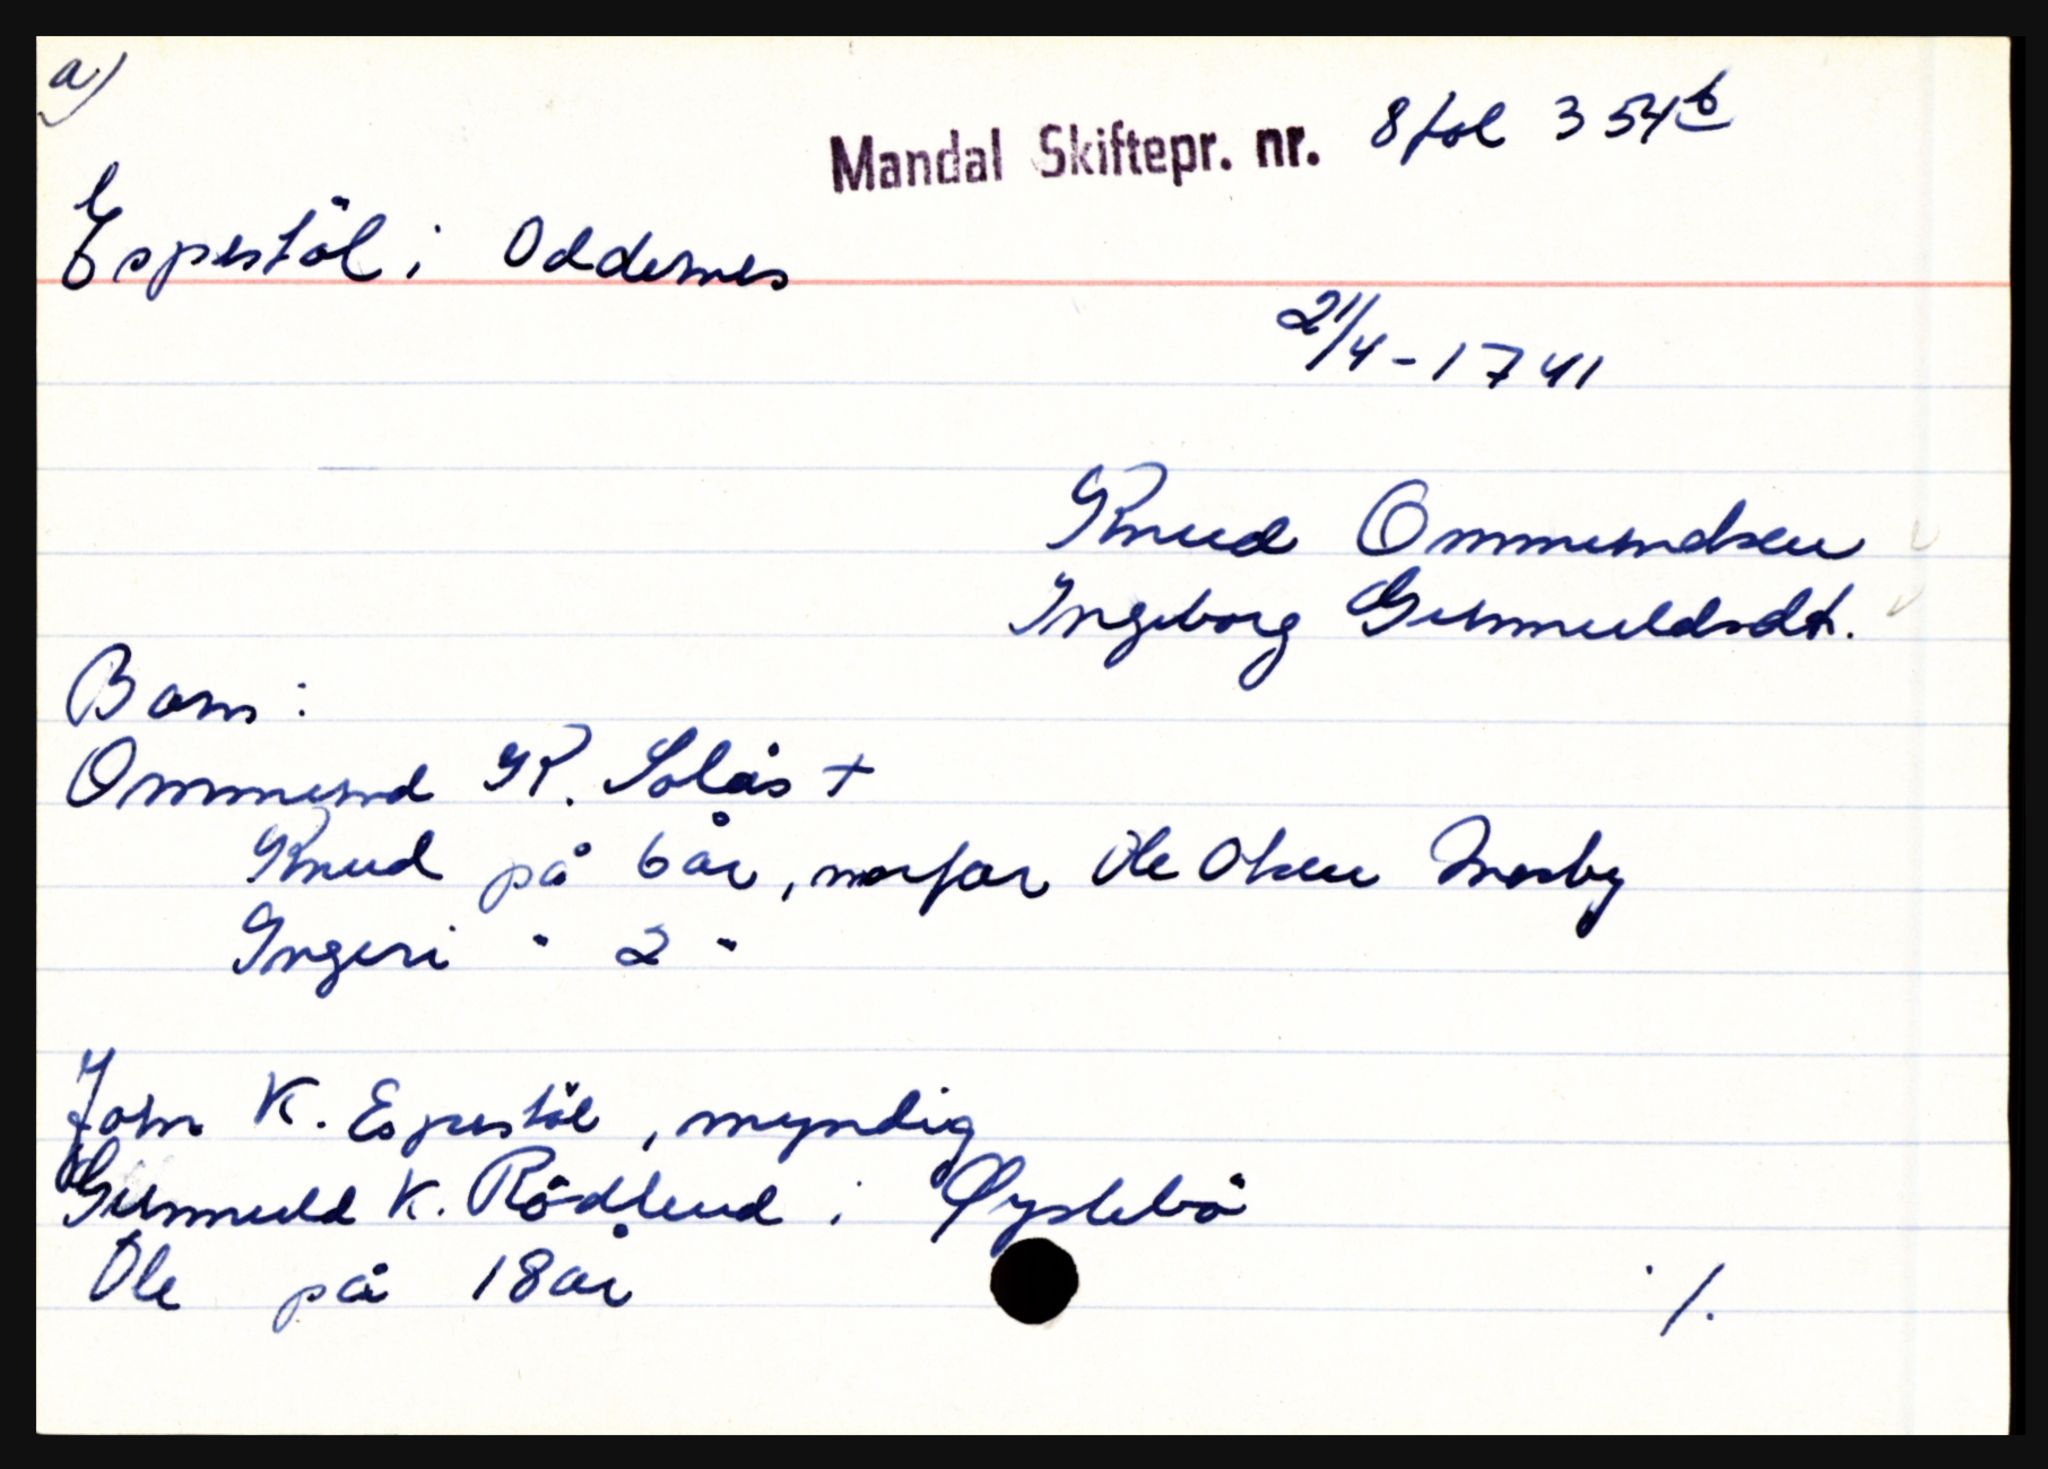 a)
Mandal Skiftepr. nr. 8 fol 354b
Espestöl i Oddernes
21/4 - 1741
Knud Ommundsen
Ingeborg Gunnuldsdt.
Barn:
Ommund K. Solås +
Knud på 6 år, morfar Ole Olsen Mosby
Ingeri " 2 "
John K. Espestöl, myndig
Gunnuld K. Rödlend i Øyslebö
Ole på 18 år
./.